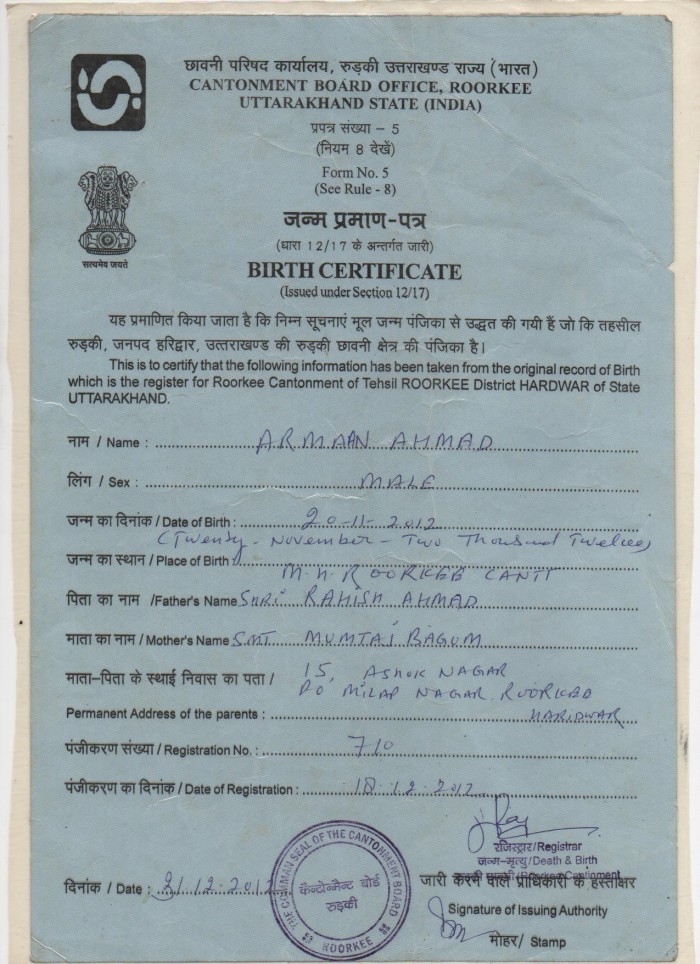 छावनी परिषद कार्यालय, रुड़की उत्तराखण्ड राज्य (भारत)
CANTONMENT BOARD OFFICE, ROORKEE
UTTARAKHAND STATE (INDIA)
प्रपत्र संख्या – 5
(नियम 8 देखें)
Form No. 5
(See Rule - 8)
सत्यमेव जयते
जन्म प्रमाण-पत्र
(धारा 12/17 के अन्तर्गत जारी)
BIRTH CERTIFICATE
(Issued under Section 12/17)
यह प्रमाणित किया जाता है कि निम्न सूचनाएं मूल जन्म पंजिका से उद्धत की गयी हैं जो कि तहसील
रुड़की, जनपद हरिद्वार, उत्तराखण्ड की रुड़की छावनी क्षेत्र की पंजिका है।
This is to certify that the following information has been taken from the original record of Birth
which is the register for Roorkee Cantonment of Tehsil ROORKEE District HARDWAR of State
UTTARAKHAND.
नाम / Name : ARMAAN AHMAD
लिंग / Sex : MALE
जन्म का दिनांक / Date of Birth : 20-11-2012
(Twenty - November - Two Thousand Twelve)
जन्म का स्थान / Place of Birth : M.H. ROORKEE CANTT
पिता का नाम /Father's Name SHRI RAHISH AHMAD
माता का नाम / Mother's Name SMT MUMTAJ BAGUM
माता–पिता के स्थाई निवास का पता / 15, ASHOK NAGAR
PO MILAP NAGAR ROORKEE
Permanent Address of the parents : HARIDWAR
पंजीकरण संख्या / Registration No. : 710
पंजीकरण का दिनांक / Date of Registration : 18-12-2012
रजिस्ट्रार/Registrar
जन्म-मृत्यु/Death & Birth
Roorkee Cantonment
दिनांक / Date : 31/12/2012
THE COMMAN SEAL OF THE CANTONMENT BOARD
कैन्टोनमेन्ट बोर्ड
रुड़की
ROORKEE
जारी करने वाले प्राधिकारी के हस्ताक्षर
Signature of Issuing Authority
मोहर/ Stamp